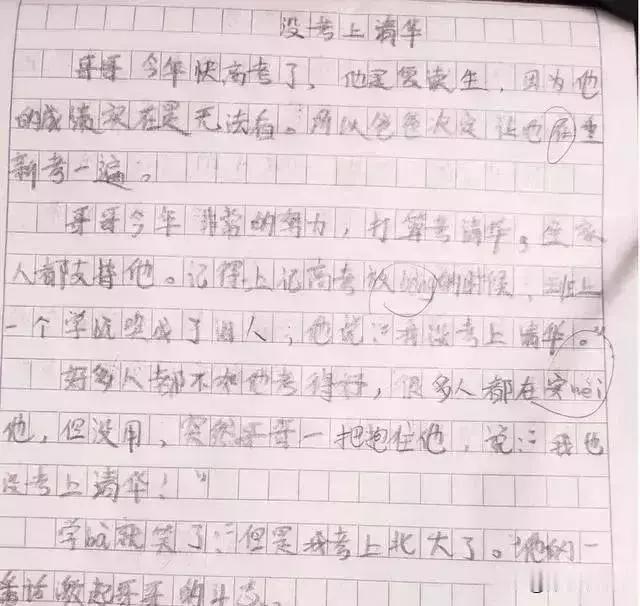 没考上清华
哥哥今年快高考了，他是复读生，因为他
的成绩实在是无法看。所以爸爸决定让他在重
新考一遍。
哥哥今年非常的努力，打算考清华，全家
人都支持他。记得上记高考放bang的时候，班上
一个学成哭成了泪人，他说：“我没考上清华。”
好多人都不如他考得好，很多人都在安nei
他，但没用，突然哥哥一把抱住他，说：“我也
没考上清华！”
学成就笑了：“但是我考上北大了。”他的一
番话激起哥哥的斗志。